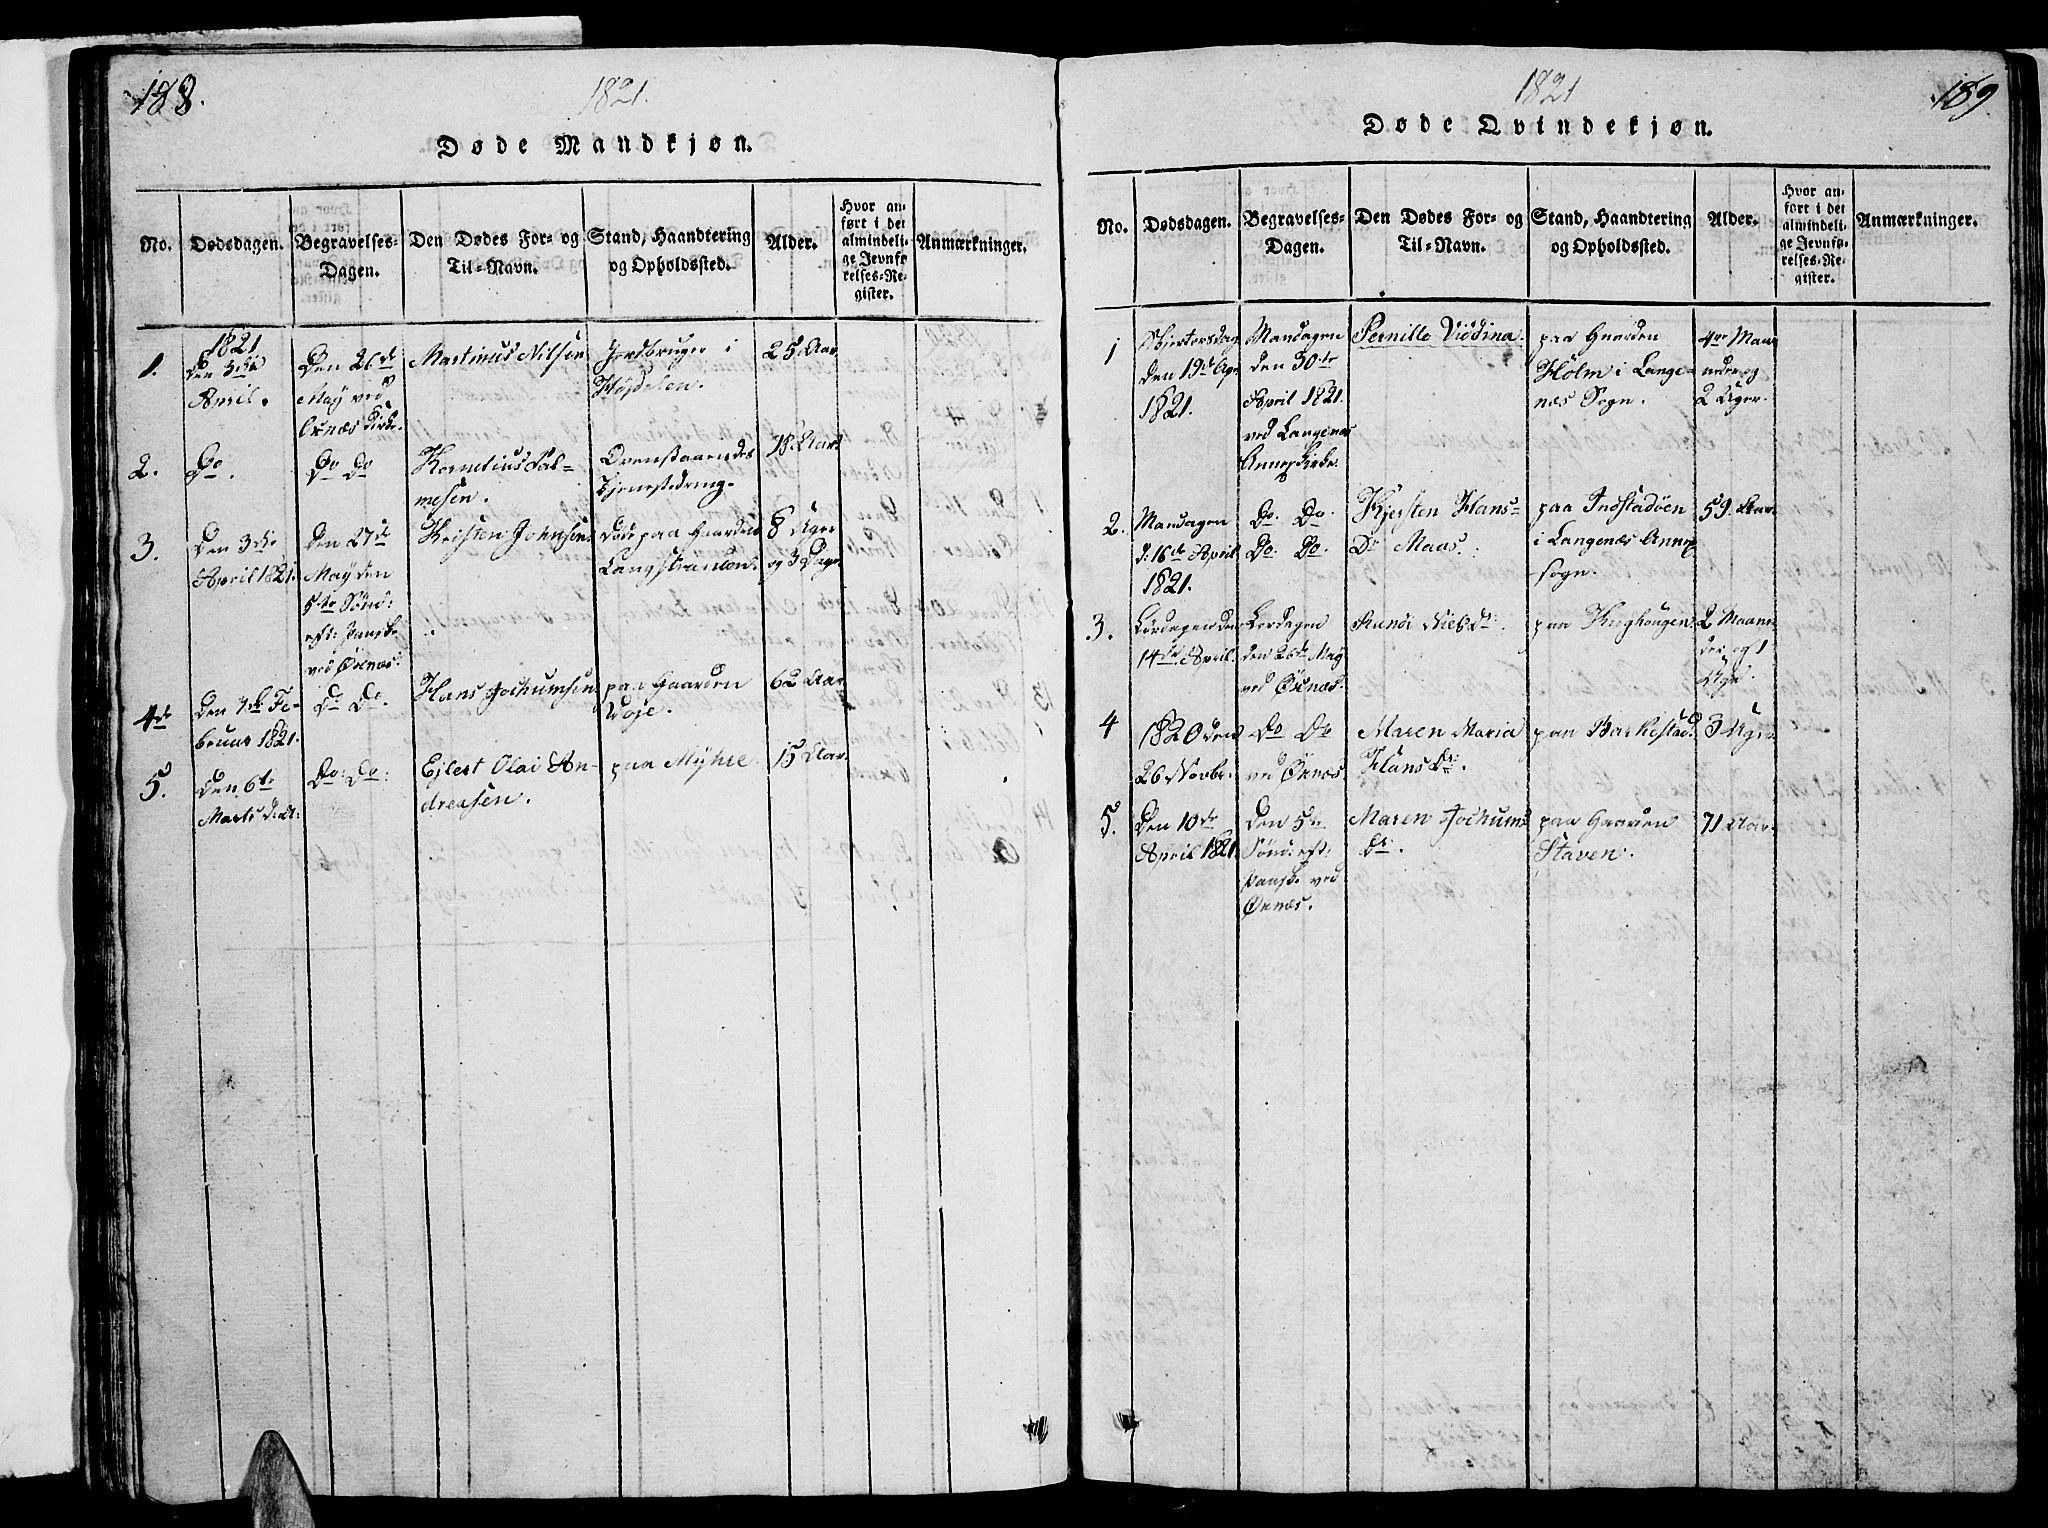 188.
1821.
Døde Mandkjøn.
No.
Dødsdagen.
Begravelses-
Dagen.
Den Dødes For- og
Til-Navn.
Stand, Haandtering
og Opholdssted.
Alder.
Hvor an-
ført i det
almindeli-
ge Jevnfø
relses-Re-
gister.
Anmærkninger.
1.
1821
den 3die
April.
Den 26de
May ved
Øxnæs Kirke.
Martinus Nilsen
Jordbruger i
25 Aar
2.
Do.
Do Do
Kornelius Sal-
mesen.
Tjenestedreng.
18 Aar
3.
Den 3die
April 1821.
Den 27de
May den
5te Sønd:
eft: Paaske
ved Øxnæs.
Kristen Johnsen
Død paa Gaarden
8 Uger
og 3 Dage
4de
Den 7de Fe-
bruar 1821.
Do Do.
Hans Jochumsen
paa Gaarden
62 Aar
5.
Den 6te
Marts
Do: Do:
Ejlert Olai An-
dreasen.
paa Myhre
15 Aar
189
1821
Døde Qvindekjøn.
No.
Dødsdagen.
Begravelses-
Dagen.
Den Dødes For- og
Til-Navn.
Stand, Haandtering
og Opholdssted.
Alder.
Hvor an-
ført i det
almindeli-
ge Jevnfø-
relses-Re-
gister.
Anmærkninger.
1
Skjertorsdag
den 19de Apr.
1821.
Mandagen
den 30te
April 1821.
ved Langenæs
Annex Kirke.
Pernille
paa Gaarden
Holm i Lange-
næs Sogn.
4re Maa-
neder og
2 Uger.
2.
Mandagen
d: 16de April
1821.
Do. Do.
Do. Do.
Kjersten Hans-
Dr Maas.
paa Indstadøen
i Langenæs Annex
sogn.
59. Aar.
3.
Lørdagen den
14de April.
Lørdagen
den 26de May
ved Øxnæs.
Niels Dr:
paa
2 Maane-
der og 1
Uge.
4
1820 den
26 Novbr.
Do Do
ved Øxnæs
Maren Maria
Hans Dr.
paa Barkestad.
3 Uger
5.
Den 10de
April 1821.
Den 5te
Sønd: eft:
Paaske ved
Øxnæs.
Maren Jochums
Dr.
paa Gaarden
Staven.
71 Aar.